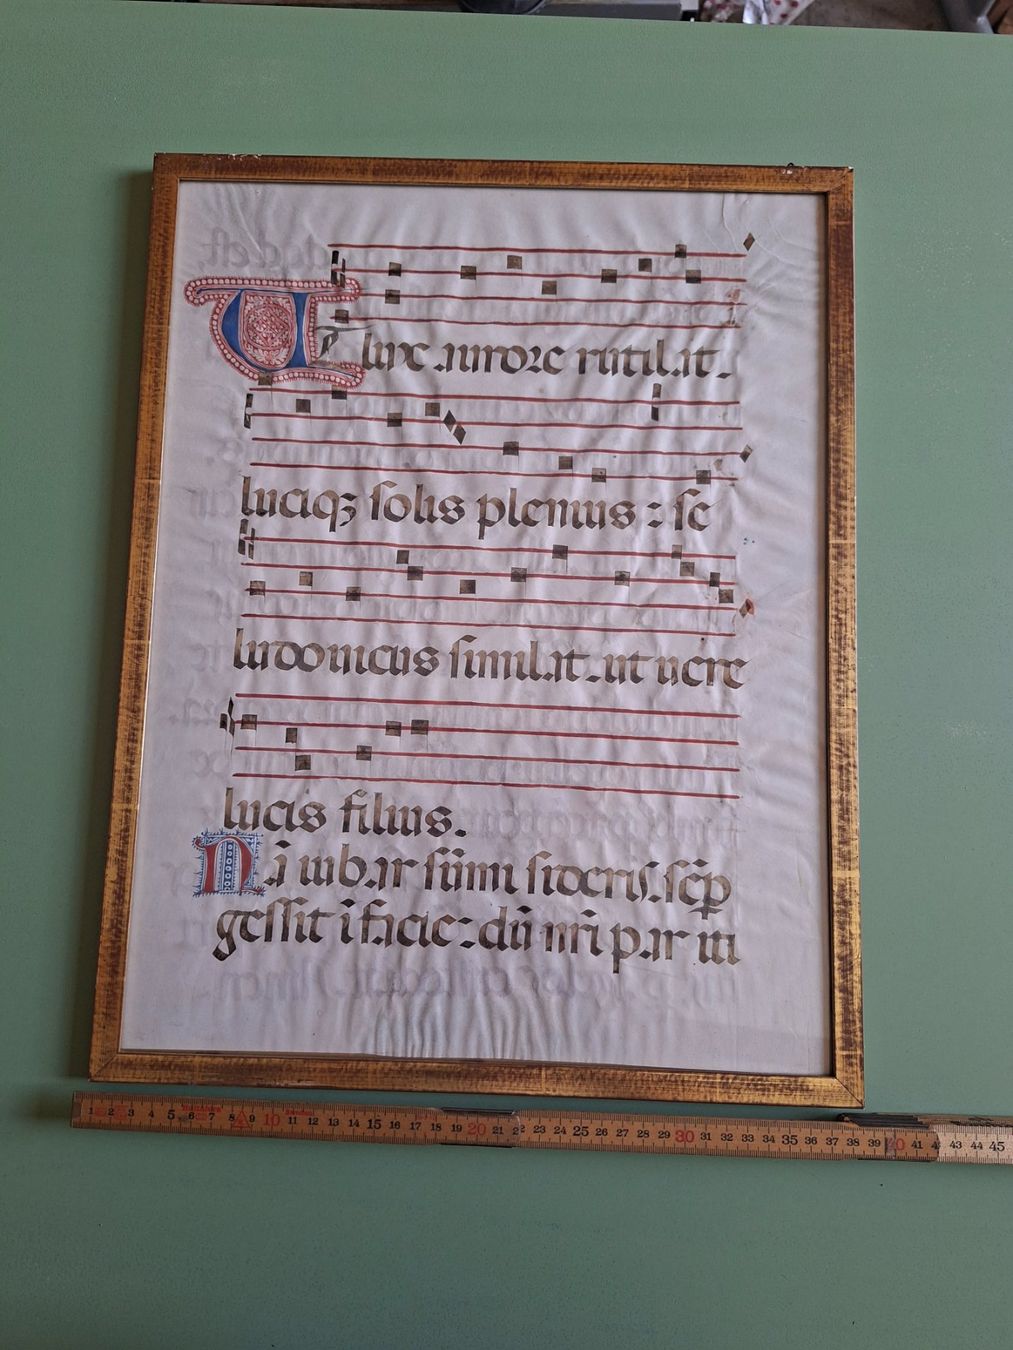 Ut lux aurore rutilat.
luciqʒ solis plenius : se
ludouicus similat. ut uere
lucis filius.
Nā iubar sūmi sideris. sēp
gessit ī facie : dū mīri par iti
1 2 3 4 5 6 7 8 9 10 11 12 13 14 15 16 17 18 19 20 21 22 23 24 25 26 27 28 29 30 31 32 33 34 35 36 37 38 39 40 41 43 44 45